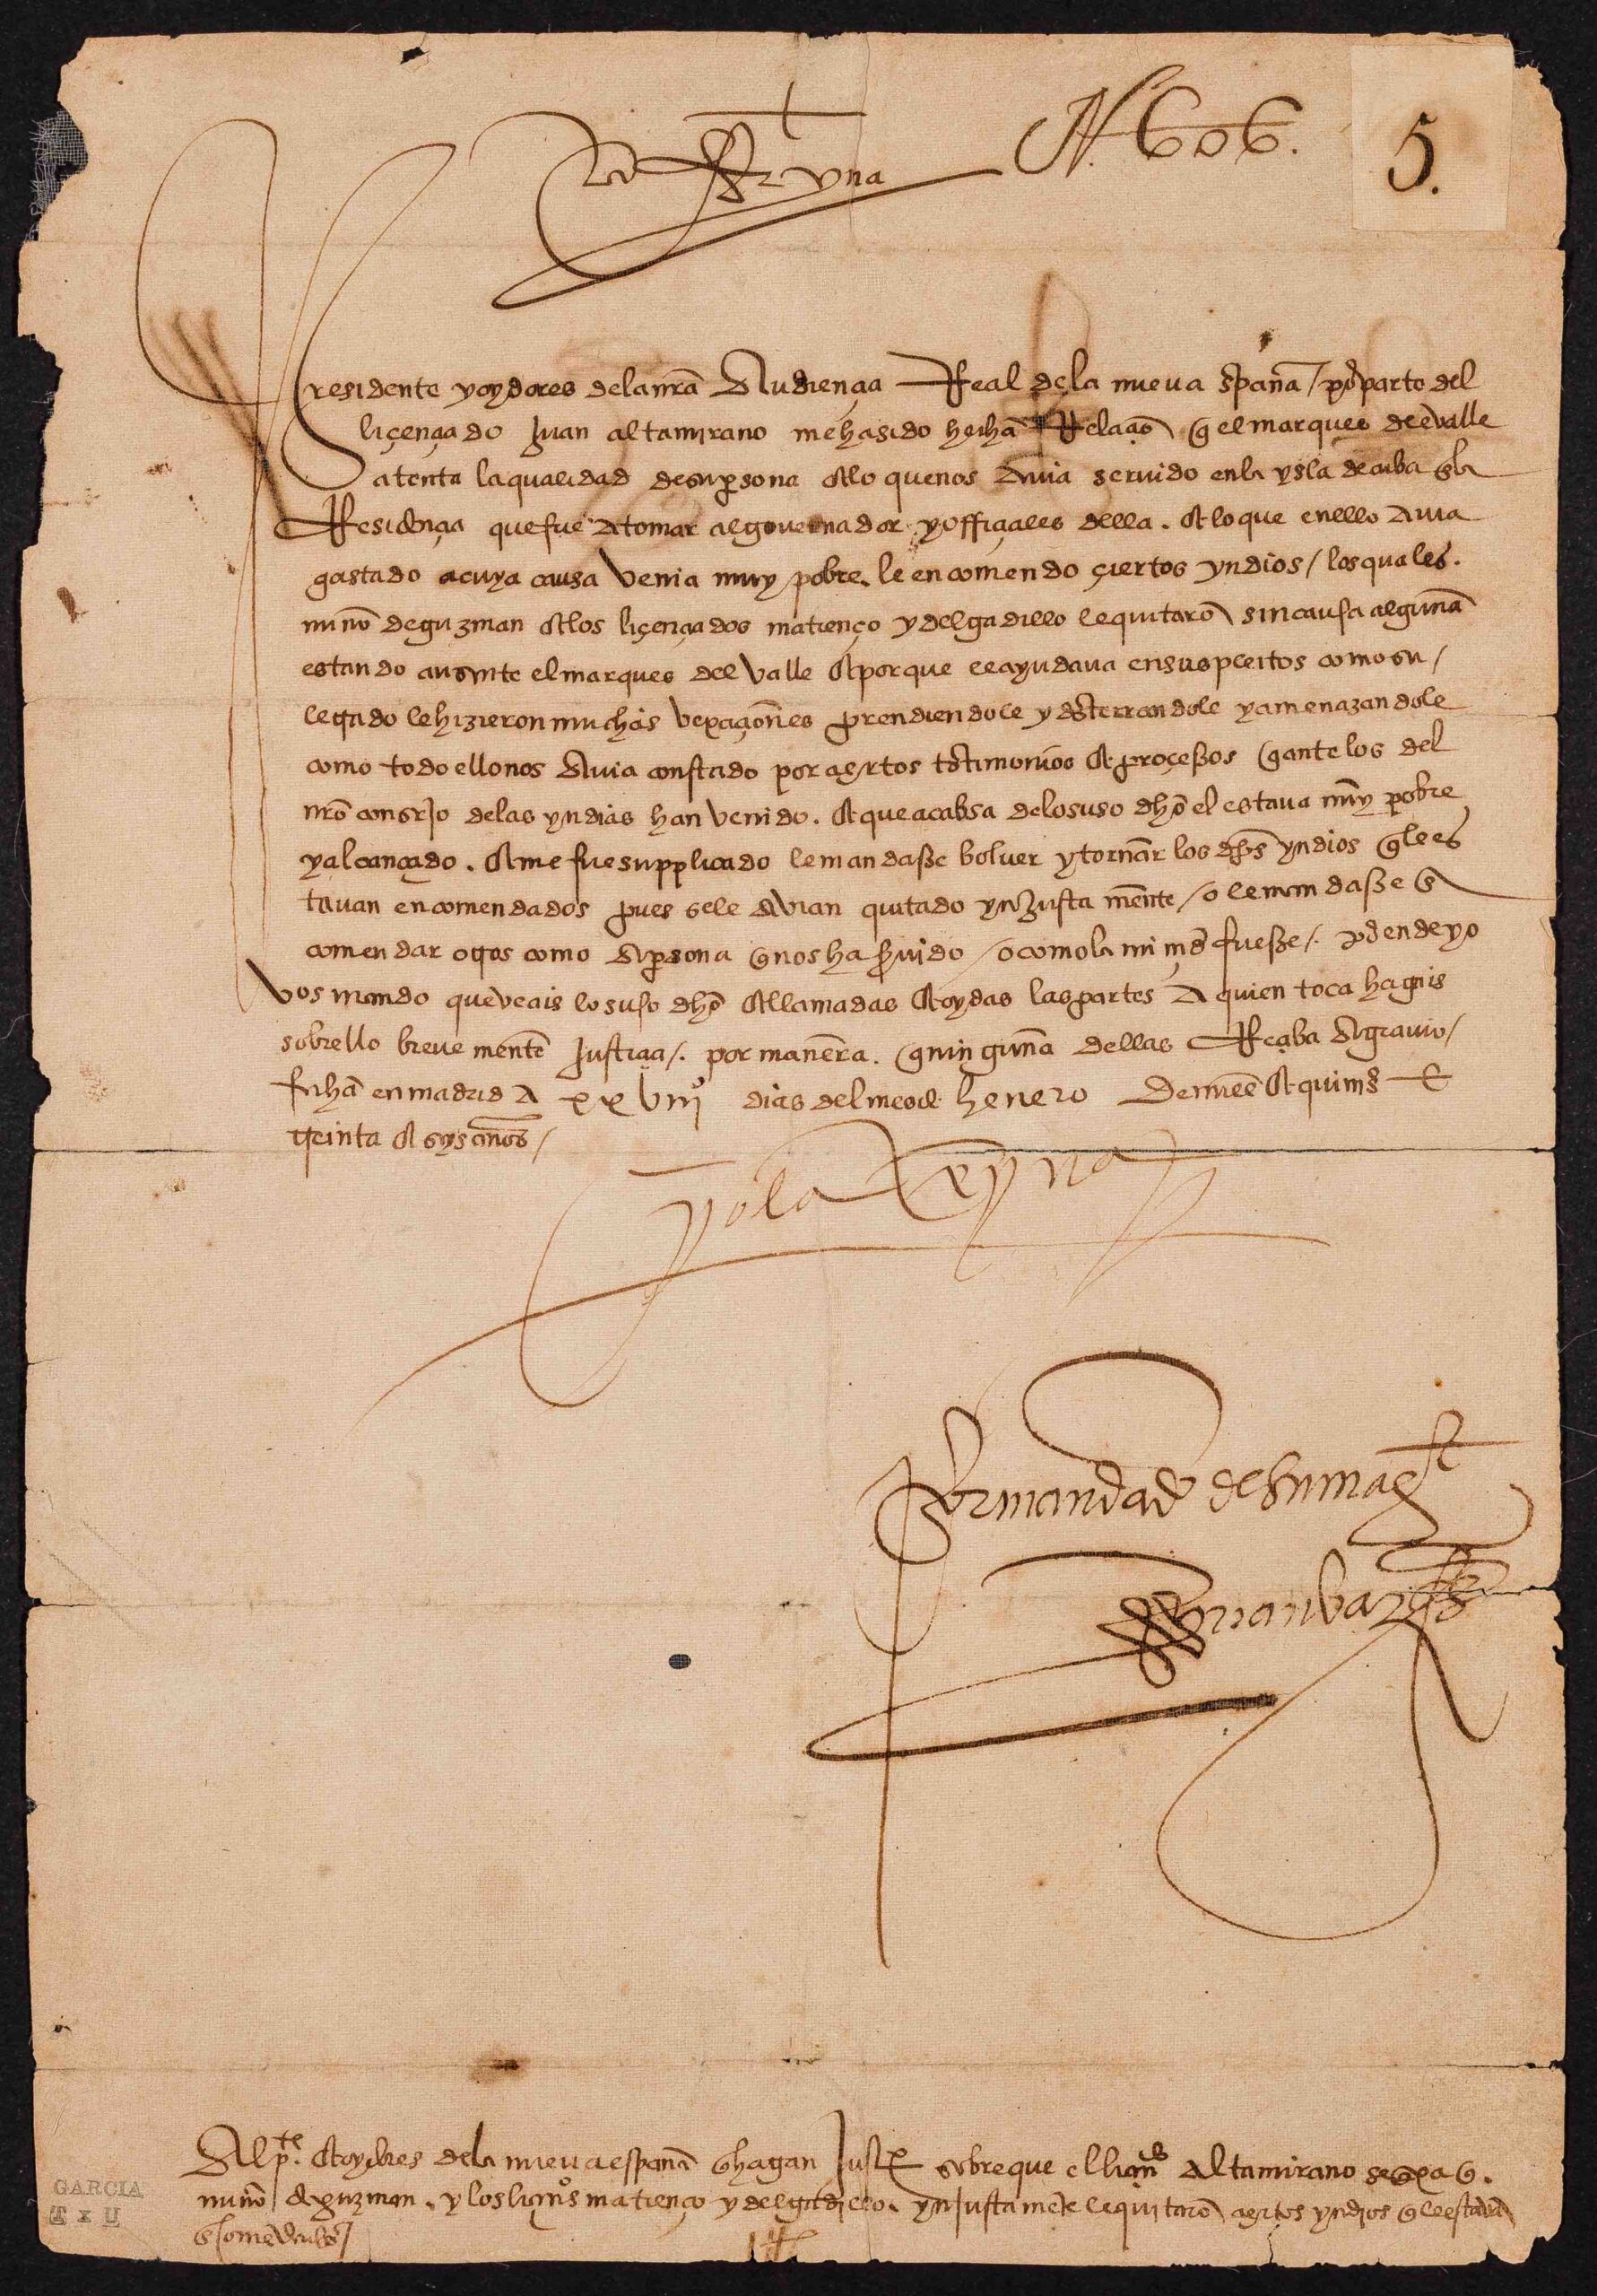 La Reyna
N. 606.
5.
Presidente y oydores de la nrã Audiençia Real de la nueva spaña / por parte del
liçençiado Juan altamirano me ha sido hecha Relaçiõ q el marques del valle
atenta la qualidad de su persona & lo que nos avia servido en la ysla de cuba en la
Residençia que fue A tomar al governador y offiçiales della. & lo que en ello Avia
gastado a cuya causa venia muy pobre. le encomendo çiertos yndios / los quales.
nuño de guzman & los liçençiados matienço y delgadillo le quitarõ sin causa alguna
estando ausente el marques del valle & porque le ayudava en sus pleitos como su /
letrado le hizieron muchas vexaçiones prendiendole y desterrandole y amenazandole
como todo ello nos Avia constado por çiertos testimonios & proçessos q ante los del
nrõ consejo de las yndias han venido. & que a cabsa de lo suso dhõ el estava muy pobre
y alcançado. & me fue supplicado le mandasse bolver y tornar los dhõs yndios q le es
tavan encomendados pues se le Avian quitado ynjustamente / o le mandasse en
comendar otros como A persona q nos ha servido / o como la mi mrd fuesse /. por ende yo
vos mando que veais lo suso dhõ & llamadas & oydas las partes A quien toca hagais
sobrello brevemente Justiçia /. por manera. q ninguna dellas Reçiba Agravio /
fecha en madrid A xxviiiº dias del mes de henero De mill & quinsº &
treinta & seys años /
yo la Reyna
Por mandado de su magt
Juan vazqz
Al pte. & oydores de la nueva españa q hagan Justª sobre que el liçendo Altamirano se quexa q.
nuño de guzman. y los liçendos matienço y delgadillo. ynjustamẽte le quitarõ çiertos yndios q le estavã
encomẽdados /
GARCIA
T x U